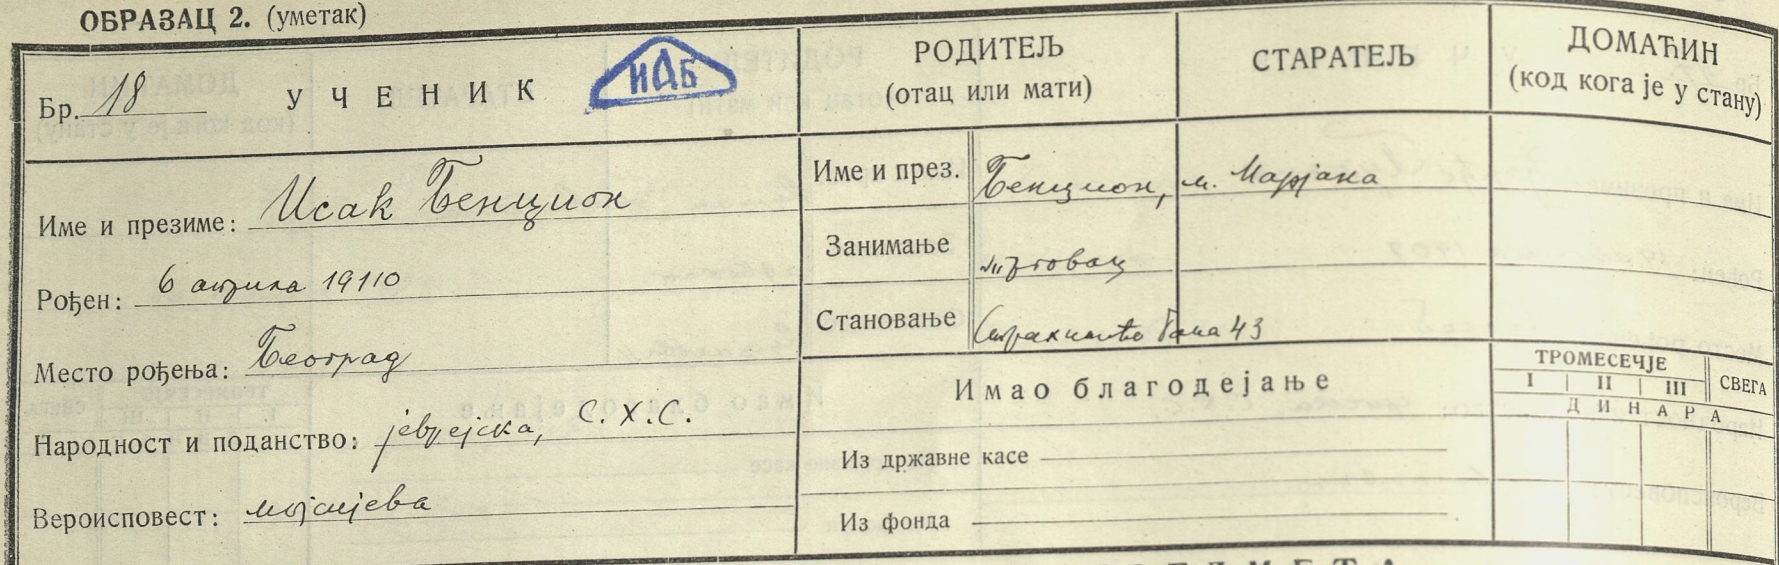 ОБРАЗАЦ 2. (уметак)
Бр. 18 УЧЕНИК
ИАБ
РОДИТЕЉ
(отац или мати)
СТАРАТЕЉ
ДОМАЋИН
(код кога је у стану)
Име и презиме: Исак Бенцион
Рођен: 6 априла 19110
Место рођења: Београд
Народност и поданство: јеврејска, С.Х.С.
Вероисповест: мојсијева
Име и през. Бенцион, м. Марјана
Занимање трговац
Становање Страхинића Бана 43
Имао благодејање
ТРОМЕСЕЧЈЕ СВЕГА
I II III
ДИНАРА
Из државне касе
Из фонда